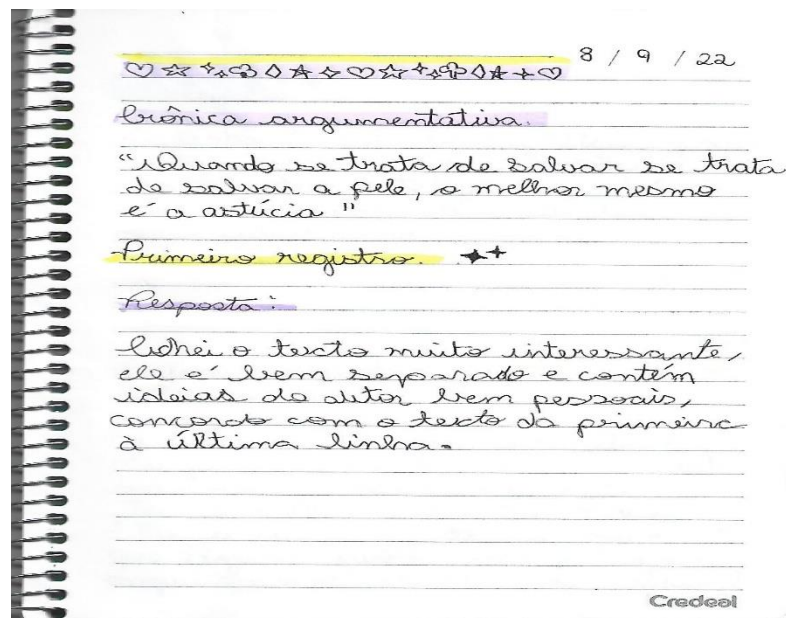 8 / 9 / 22
Crônica argumentativa.
"Quando se trata de salvar se trata
de salvar a pele, o melhor mesmo
é a astúcia"
Primeiro registro.
Resposta:
Achei o texto muito interessante,
ele é bem separado e contém
ideias do autor bem pessoais,
concordo com o texto da primeira
à última linha.
Credeal